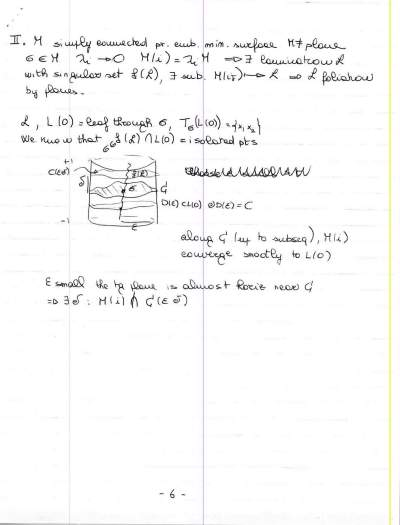 II. M simply connected pr. emb. min. surface M ≠ plane
σ ∈ M λi → 0 M(i) = λi M ⇒ ∃ lamination L
with singular set S(L), ∃ sub. M(ij) → L ⇒ L foliation
by planes.
L, L(0) = leaf through σ, Tσ(L(0)) = {x1 x2}
We know that σ∈ S(L) ∩ L(0) = isolated pts
+1
C(εδ) δ S(L)
σ G
D(ε) ⊂ L(0) ∂D(ε) = C
-1 ε
along G (up to subseq), M(i)
converge smoothly to L(0)
ε small the tg plane is almost horiz near G
⇒ ∃ δ : M(i) ∩ G(ε δ)
- 6 -